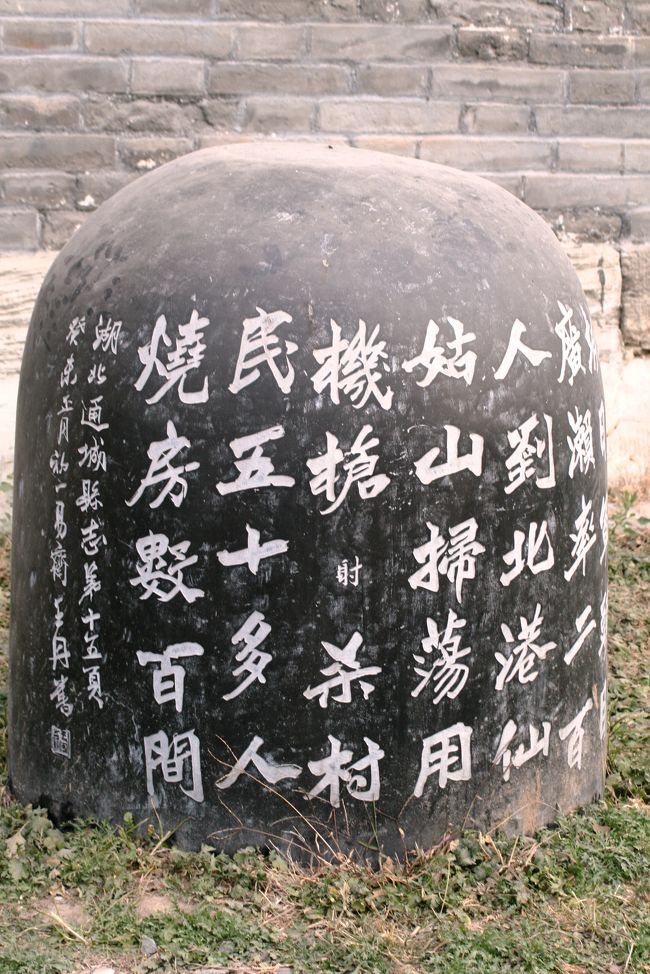 廣瀨率二百
人劉北港仙
姑山掃蕩用
機槍射杀村
民五十多人
燒房數百間
湖北通城縣志第十五頁
癸未 月初一易齋 王丹